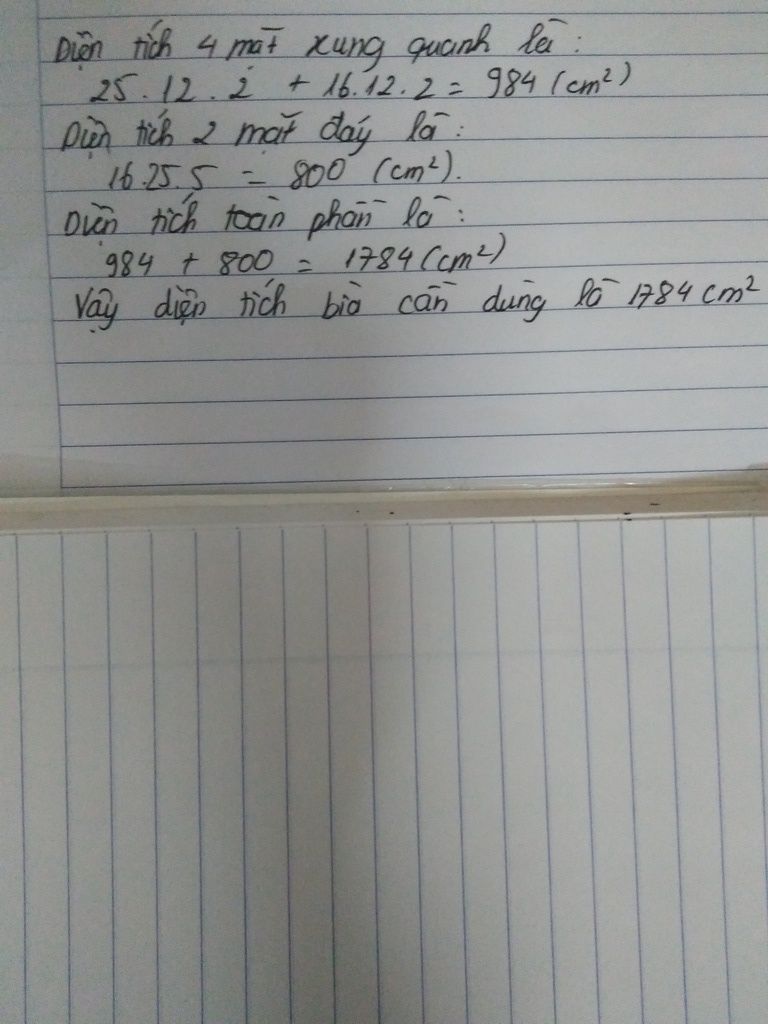 Diện tích 4 mặt xung quanh là:
25.12.2 + 16.12.2 = 984 (cm²)
Diện tích 2 mặt đáy là:
16.25.5 = 800 (cm²).
Diện tích toàn phần là:
984 + 800 = 1784 (cm²)
Vậy diện tích bìa cần dùng là 1784 cm²